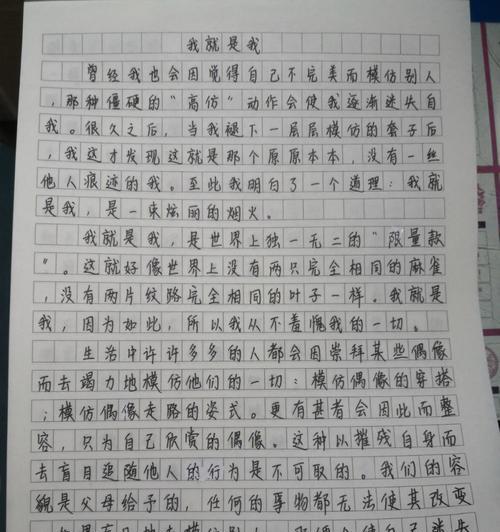 我就是我
曾经我也会因觉得自己不完美而模仿别人
，那种僵硬的“高仿”动作会使我逐渐迷失自
我。很久之后，当我褪下一层层模仿的套子后
，我这才发现这就是那个原原本本，没有一丝
他人痕迹的我。至此我明白了一个道理：我就
是我，是一束炫丽的烟火。
我就是我，是世界上独一无二的“限量款
”。这就好像世界上没有两只完全相同的麻雀
，没有两片纹路完全相同的叶子一样。我就是
我，因为如此，所以我从不羞愧我的一切。
生活中许许多多的人都会因崇拜某些偶像
而去竭力地模仿他们的一切：模仿偶像的穿搭
；模仿偶像走路的姿式。更有甚者会因此而整
容，只为自己欣赏的偶像。这种以摧残自身而
去盲目追随他人的行为是不可取的。我们的容
貌是父母给予的，任何的事物都无法使其改变